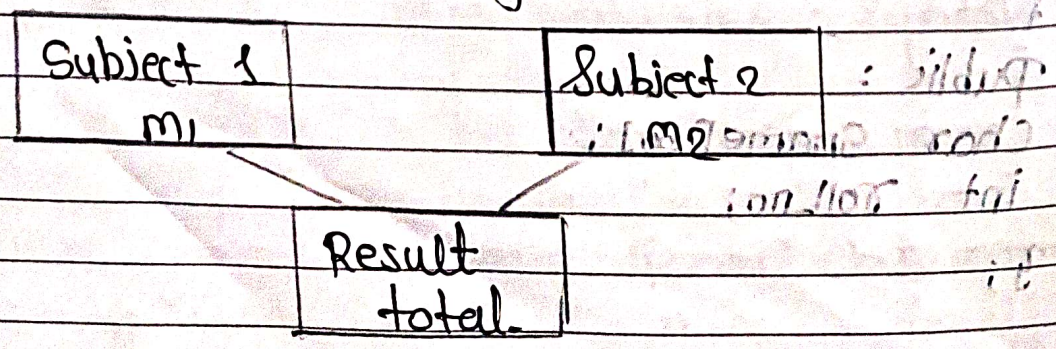 Subject 1
m1
Subject 2
m2
Result
total.